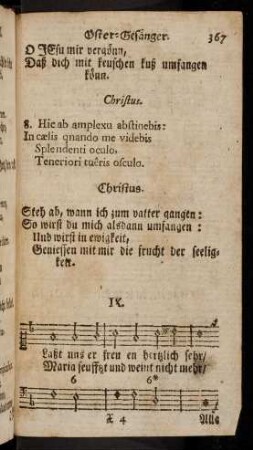 Oster-Gesänger. 367
O JEsu mir vergönn,
Daß dich mit keuschen kuß umfangen
könn.
Christus.
8. Hic ab amplexu abstinebis:
In cælis quando me videbis
Splendenti oculo,
Teneriori tuêris osculo.
Christus.
Steh ab, wann ich zum vatter gangen:
So wirst du mich alsdann umfangen:
Und wirst in ewigkeit,
Geniessen mit mir die frucht der seelig-
keit.
IX.
Laßt uns er freu en hertzlich sehr/
Maria seufftzt und weint nicht mehr/
6 6*
X 4 Alle